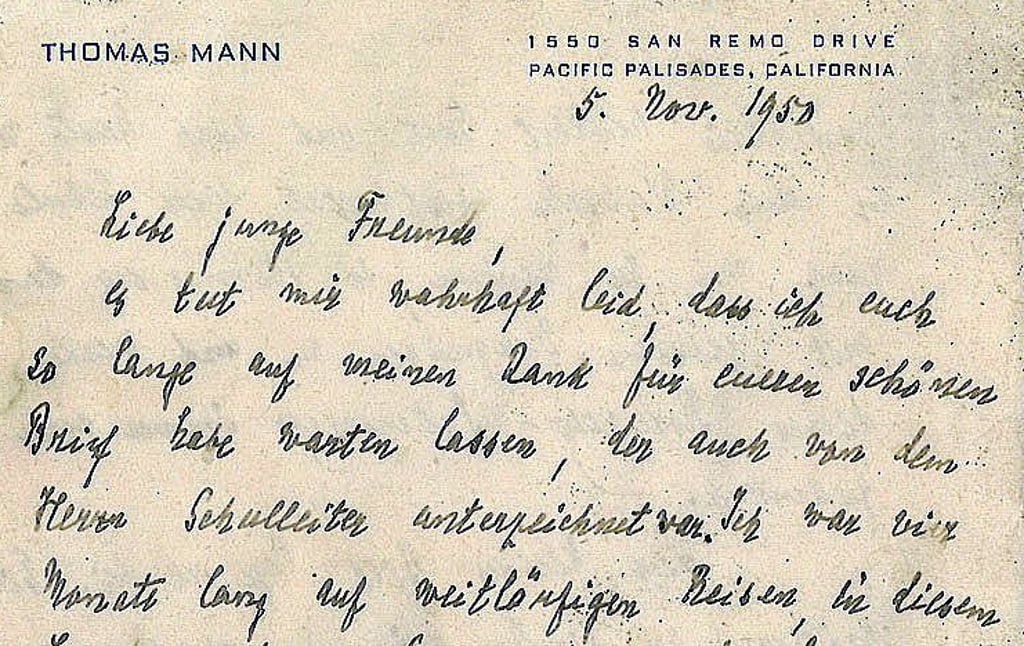 THOMAS MANN
1550 SAN REMO DRIVE
PACIFIC PALISADES, CALIFORNIA
5. Nov. 1950
Liebe junge Freunde,
es tut mir wahrhaft leid, dass ich euch
so lange auf meinen Dank für eueren schönen
Brief habe warten lassen, der auch von dem
Herrn Schulleiter unterzeichnet war. Ich war vier
Monate lang auf weitläufigen Reisen, in diesem